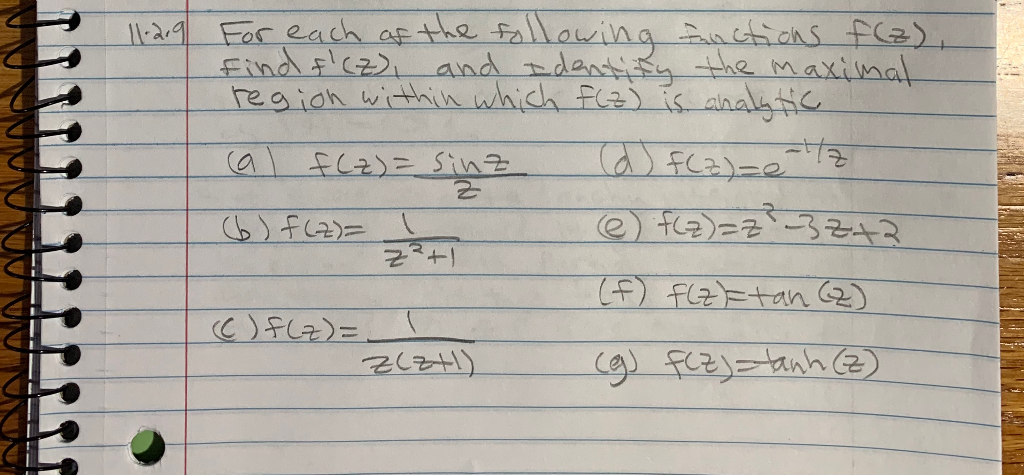 11.2.9 For each of the following functions f(z),
find f'(z), and identify the maximal
region within which f(z) is analytic
(a) f(z) = sin z / z (d) f(z) = e^{-1/z}
(b) f(z) = 1 / z²+1 (e) f(z) = z² - 3z + 2
(f) f(z) = tan (z)
(c) f(z) = 1 / z(z+1)
(g) f(z) = tanh (z)